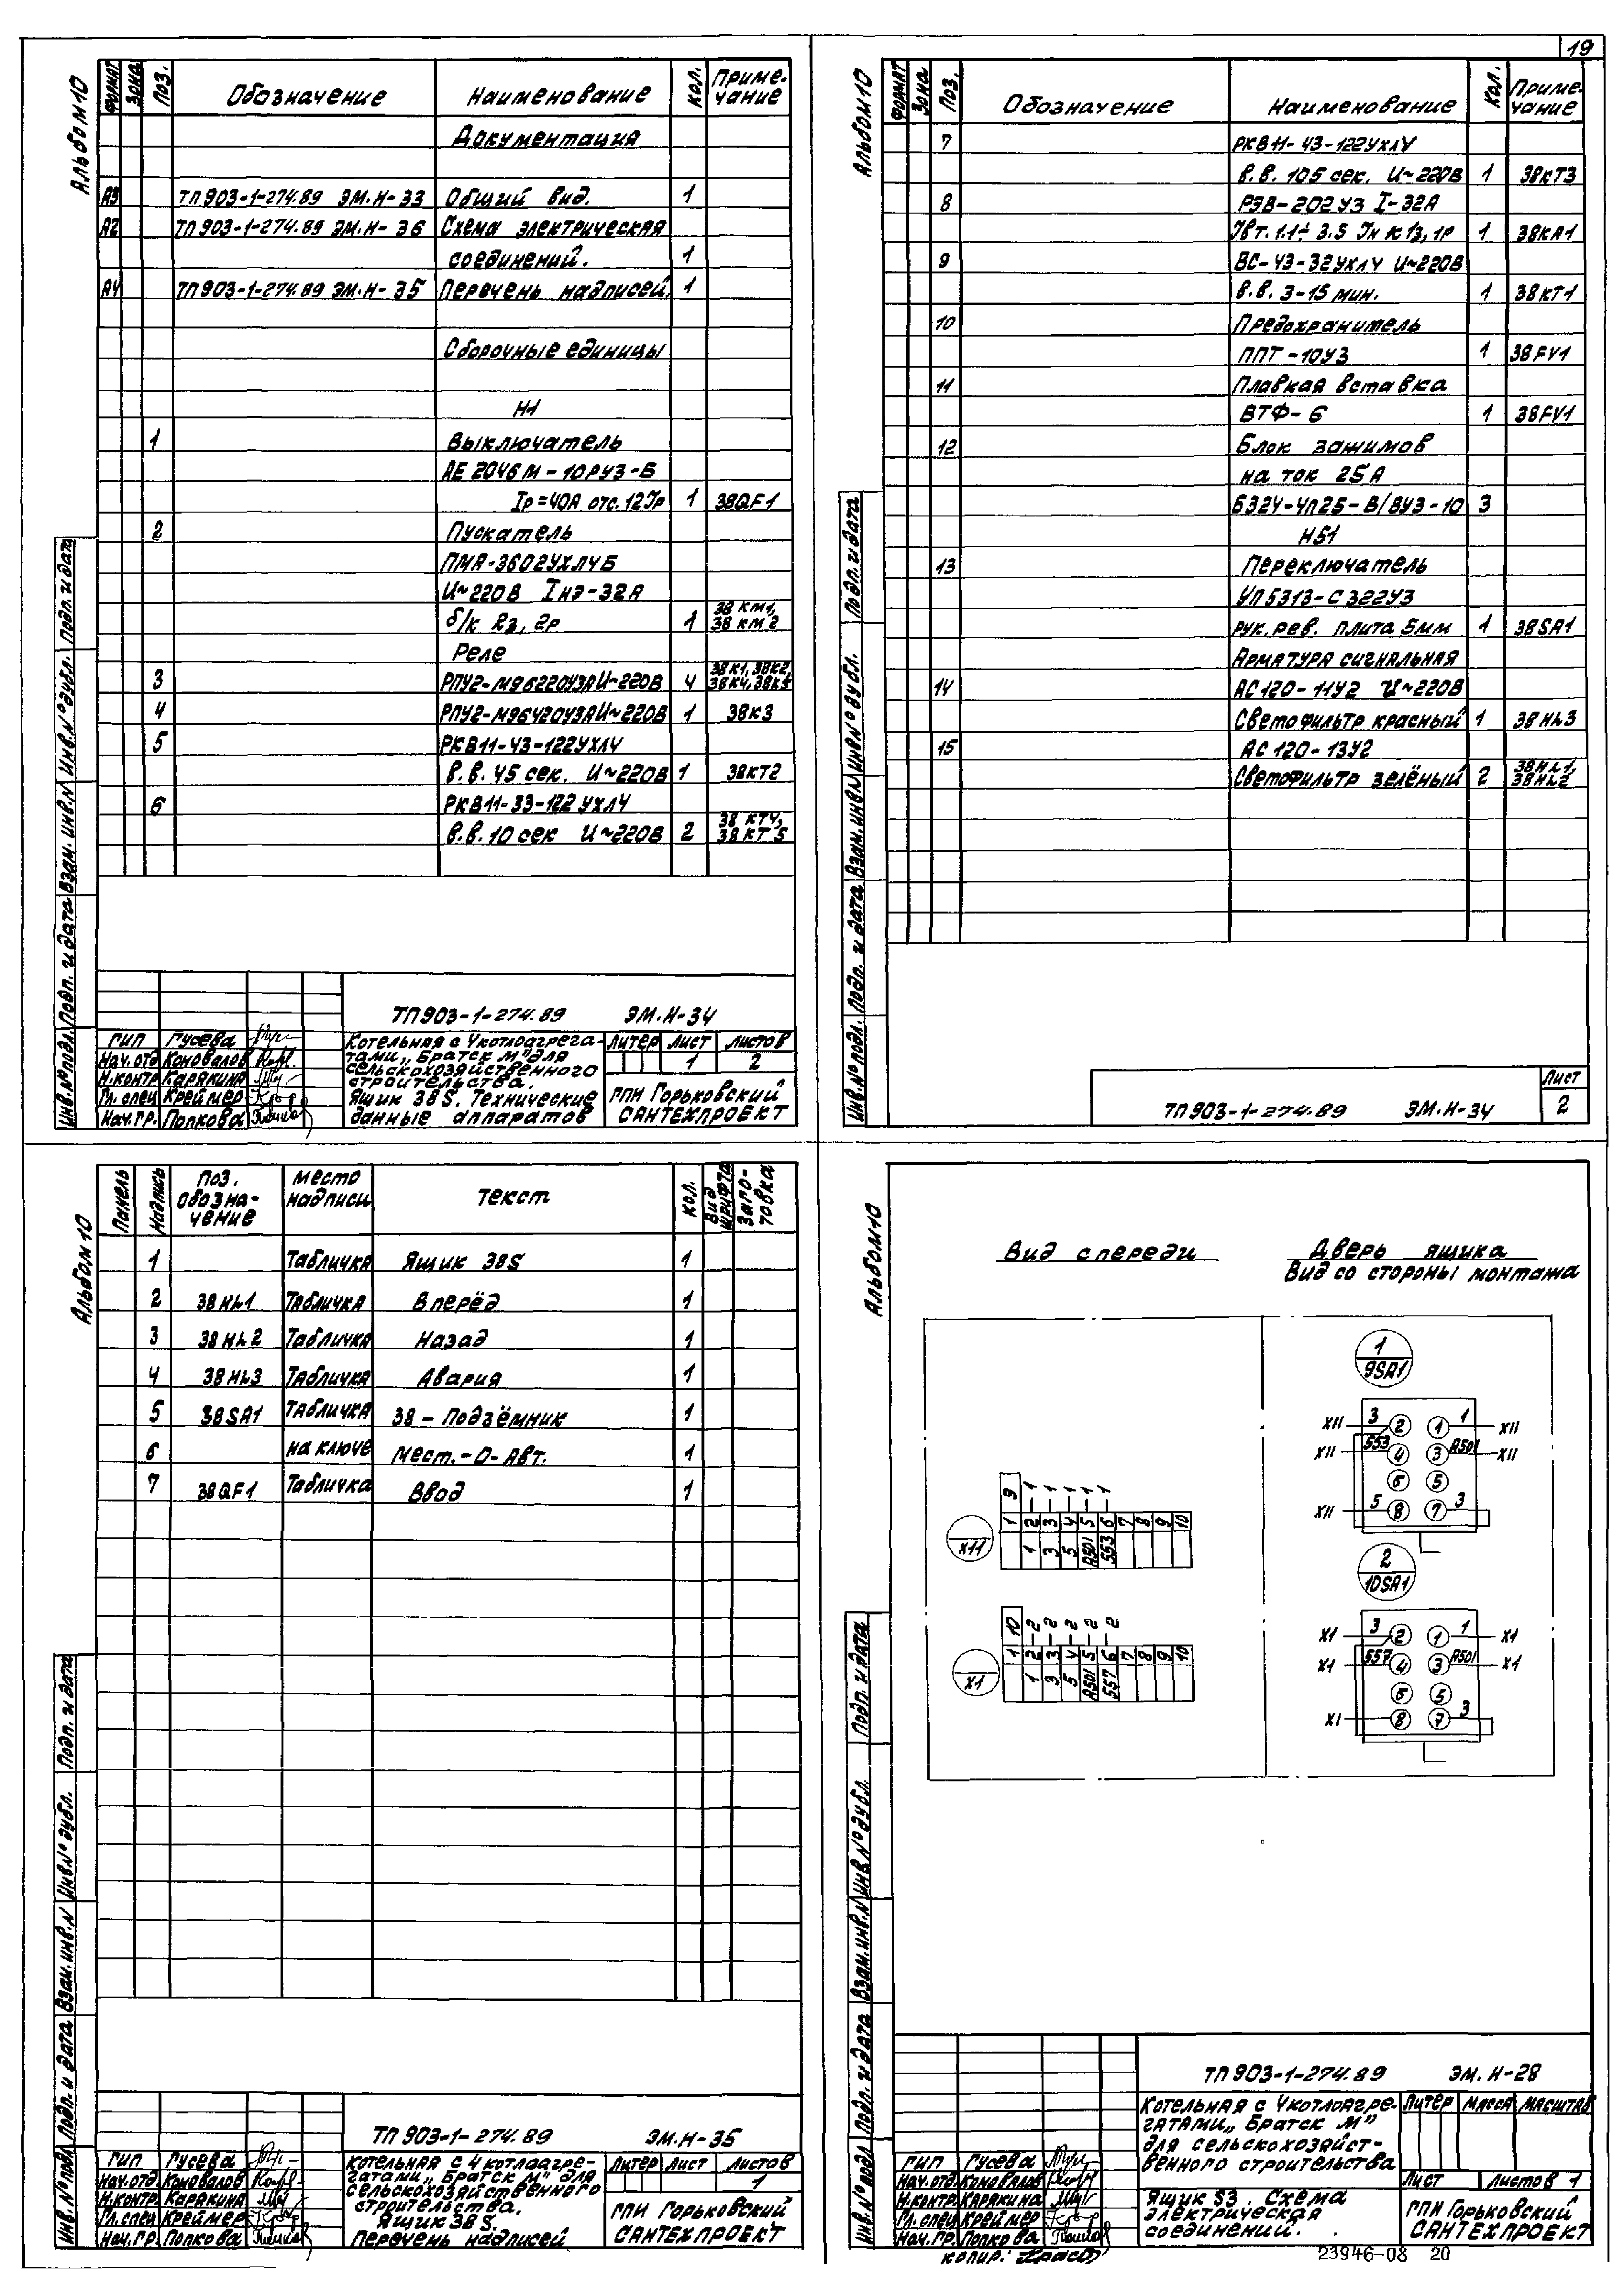 19
Альбом 10
Формат Зона Поз. Обозначение Наименование Кол. Приме-
чание
Документация
А3 ТП903-1-274.89 ЭМ.Н-33 Общий вид. 1
А2 ТП903-1-274.89 ЭМ.Н-36 Схема электрическая
соединений. 1
А4 ТП903-1-274.89 ЭМ.Н-35 Перечень надписей. 1
Сборочные единицы
Н1
1 Выключатель
АЕ 2046М-10РУЗ-Б
Iр=40А отс. 12Iр 1 38QF1
2 Пускатель
ПМА-3602УХЛ4Б
U~220В Iнэ-32А
б/к 2з, 2р 1 38 КМ1,
38 КМ2
Реле
3 РПУ2-М96220УЗА U~220В 4 38К1, 38К2,
38К4, 38К5
4 РПУ2-М96420УЗА U~220В 1 38К3
5 РКВ11-43-122УХЛ4
в.в. 45 сек. U~220В 1 38КТ2
6 РКВ11-33-122УХЛ4
в.в. 10 сек U~220В 2 38 КТ4,
38 КТ5
Инв.№подл. Подп. и дата Взам. инв.№ Инв.№дубл. Подп. и дата
ТП903-1-274.89 ЭМ.Н-34
ГИП Гусева
Нач.отд Коновалов
Н.контр Карякина
Гл.спец Креймер
Нач.гр. Попкова
Котельная с 4 котлоагрега-
тами „Братск М" для
сельскохозяйственного
строительства.
Ящик 38S. Технические
данные аппаратов
Литер Лист Листов
1 2
ГПИ Горьковский
САНТЕХПРОЕКТ
Альбом 10
Формат Зона Поз. Обозначение Наименование Кол. Приме-
чание
7 РКВ11-43-122УХЛ4
в.в. 105 сек. U~220В 1 38КТ3
8 РЭВ-202УЗ I-32А
Iвт. 1.1÷3.5 Iн к 1з, 1р 1 38КА1
9 ВС-43-32УХЛ4 U~220В
в.в. 3-15 мин. 1 38КТ1
10 Предохранитель
ППТ-10УЗ 1 38FV1
11 Плавкая вставка
ВТФ-6 1 38FV1
12 Блок зажимов
на ток 25А
БЗ24-4П25-В/ВУЗ-10 3
Н51
13 Переключатель
УП5313-С322УЗ
рук. рев. плита 5мм 1 38SA1
Арматура сигнальная
14 АС120-11У2 U~220В
Светофильтр красный 1 38HL3
15 АС120-13У2
Светофильтр зелёный 2 38HL1,
38HL2
Инв.№подл. Подп. и дата Взам.инв.№ Инв.№дубл. Подп. и дата
ТП903-1-274.89 ЭМ.Н-34
Лист
2
Альбом 10
Панель Надпись Поз.
обозна-
чение Место
надписи Текст Кол. Вид
шрифта Заго-
товка
1 Табличка Ящик 38S 1
2 38HL1 Табличка Вперёд 1
3 38HL2 Табличка Назад 1
4 38HL3 Табличка Авария 1
5 38SA1 Табличка 38-Подъёмник 1
6 на ключе Мест.-О-Авт. 1
7 38QF1 Табличка Ввод 1
Инв.№подл. Подп. и дата Взам.инв.№ Инв.№дубл. Подп. и дата
ТП903-1-274.89 ЭМ.Н-35
ГИП Гусева
Нач.отд Коновалов
Н.контр Карякина
Гл.спец Креймер
Нач.гр. Попкова
Котельная с 4 котлоагре-
гатами „Братск М" для
сельскохозяйственного
строительства.
Ящик 38S.
Перечень надписей
Литер Лист Листов
1
ГПИ Горьковский
САНТЕХПРОЕКТ
Альбом 10
Вид спереди
Дверь ящика
Вид со стороны монтажа
1
9SA1
XII 3 2 1 1 XII
XII 553 4 3 A501 XII
6 5
XII 5 8 7 3
2
10SA1
X1 3 2 1 1 X1
X1 557 4 3 A501 X1
6 5
X1 8 7 3
X11
9
1 1 1 1 1
1 2 3 4 5 6 7 8 9 10
1 3 5 A501 553
X1
10
2 2 2 2 2
1 2 3 4 5 6 7 8 9 10
1 3 5 A501 557
Инв.№подл Подп. и дата Взам.инв.№ Инв.№дубл. Подп. и дата
ТП903-1-274.89 ЭМ.Н-28
ГИП Гусева
Нач.отд Коновалов
Н.контр Карякина
Гл.спец Креймер
Нач.гр. Попкова
Котельная с 4 котлоагре-
гатами „Братск М"
для сельскохозяйст-
венного строительства
Ящик S3. Схема
электрическая
соединений.
Литер Масса Масштаб
Лист Листов 1
ГПИ Горьковский
САНТЕХПРОЕКТ
копир:
23946-08 20